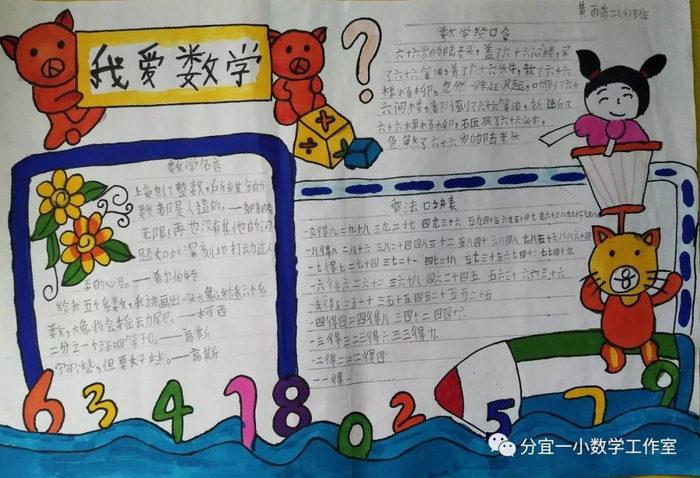 我爱数学
数学绕口令
六十六岁的陆老头,盖了六十六间楼,买
了六十六篓油,养了六十六头牛,栽了六十六
棵垂杨柳。忽然一阵狂风起,吹倒了六十
六间楼,翻倒了六十六篓油,折断了
六十六棵垂杨柳,砸死了六十六头牛,
急煞了六十六岁的陆老头
数学名言
上帝创造了整数,所有其余的
数都是人造的。
无限!再也没有其他的问
题如此深刻地打动过人
类的心灵。——希尔伯特
给我五个系数,我讲画出一头大象;给我六个系
数,大象将会摇动尾巴。——柯西
二分之一个证明等于0。——高斯
宁可少些,但要好些。——高斯
乘法口诀表
一九得九 二九十八 三九二十七 四九三十六 五九四十五 六九五十四 七九六十三
一八得八 二八十六 三八二十四 四八三十二 五八四十 六八四十八 七八五十六 八八六十四
一七得七 二七十四 三七二十一 四七二十八 五七三十五 六七四十二 七七四十九
一六得六 二六十二 三六十八 四六二十四 五六三十 六六三十六
一五得五 二五一十 三五十五 四五二十 五五二十五
一四得四 二四得八 三四十二 四四十六
一三得三 二三得六 三三得九
一二得二 二二得四
一一得一
8
6 3 4 1 8 0 2 5 7 9
分宜一小数学工作室